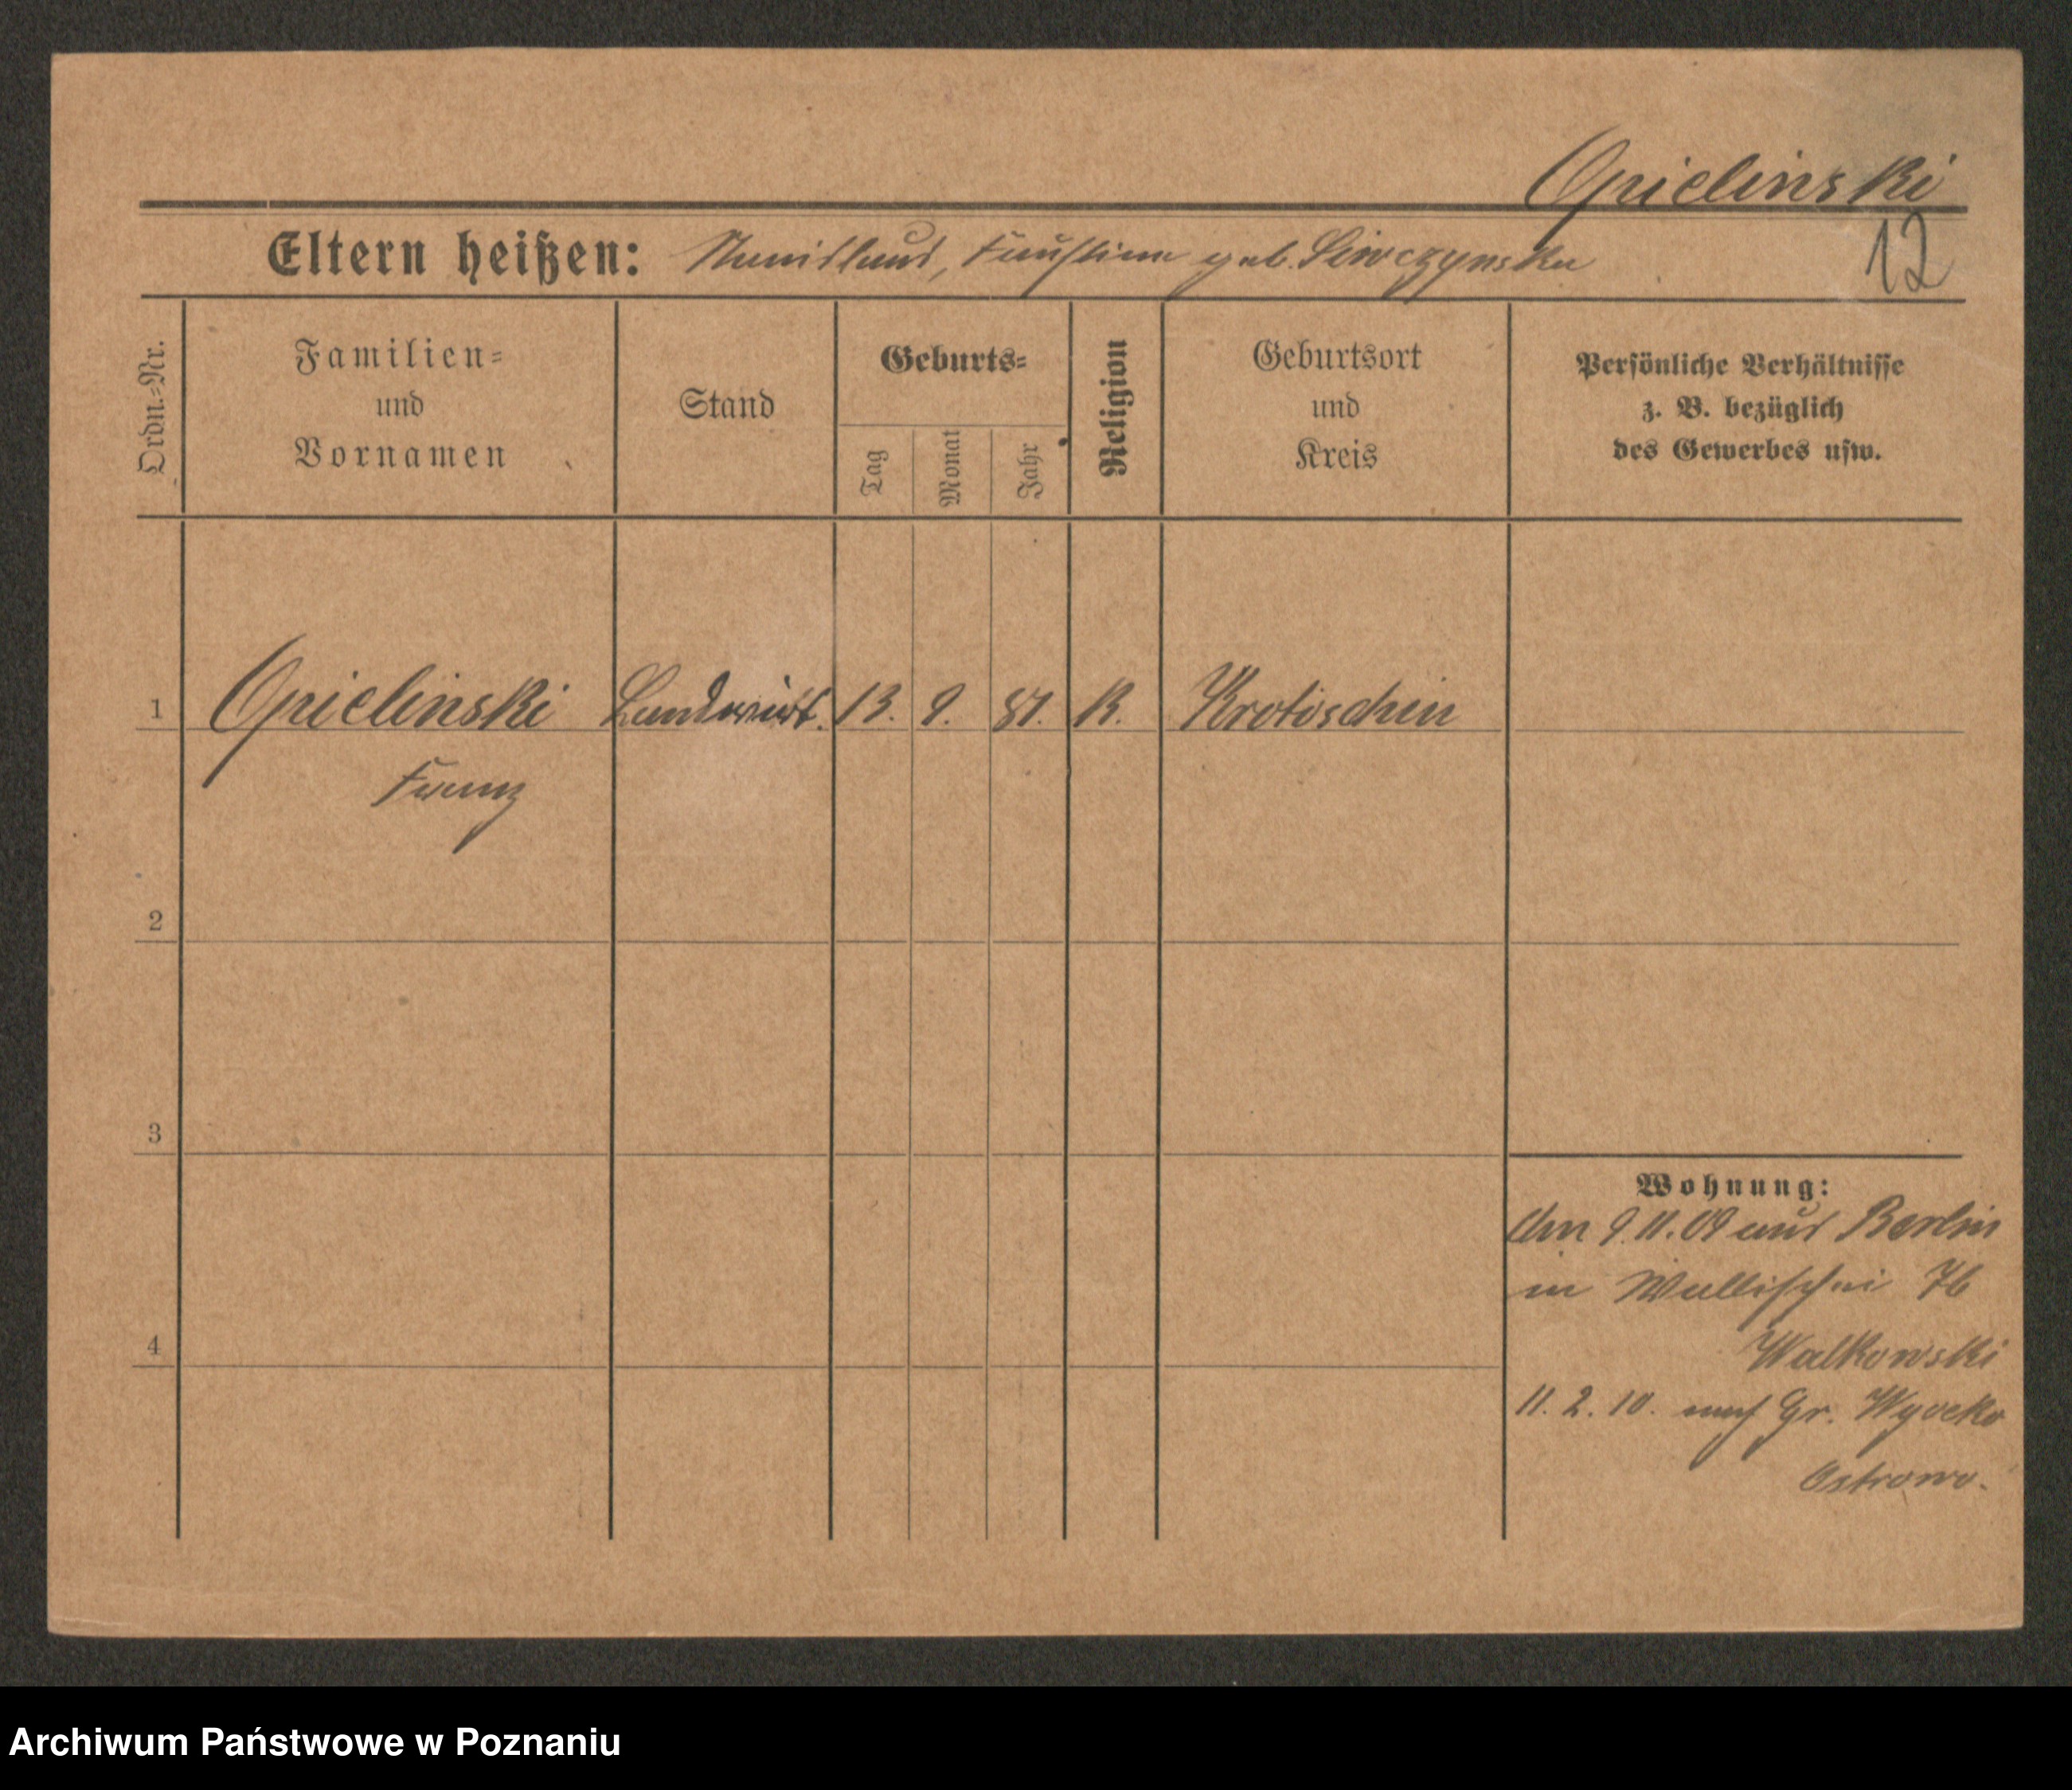 Opielinski
12
Eltern heißen: Stanislaus, Faustina geb. Siwczynska
Ordn.=Nr.
Familien=
und
Vornamen
Stand
Geburts=
Tag
Monat
Jahr
Religion
Geburtsort
und
Kreis
Persönliche Verhältnisse
z. B. bezüglich
des Gewerbes usw.
1 Opielinski Landwirt. 13. 9. 81. K. Krotoschin
Franz
2
3
4
Wohnung:
Am 9.11.09 aus Berlin
in Wallischei 76
Walkowski
11. 2. 10. nach Gr. Wysocko
Ostrowo.
Archiwum Państwowe w Poznaniu